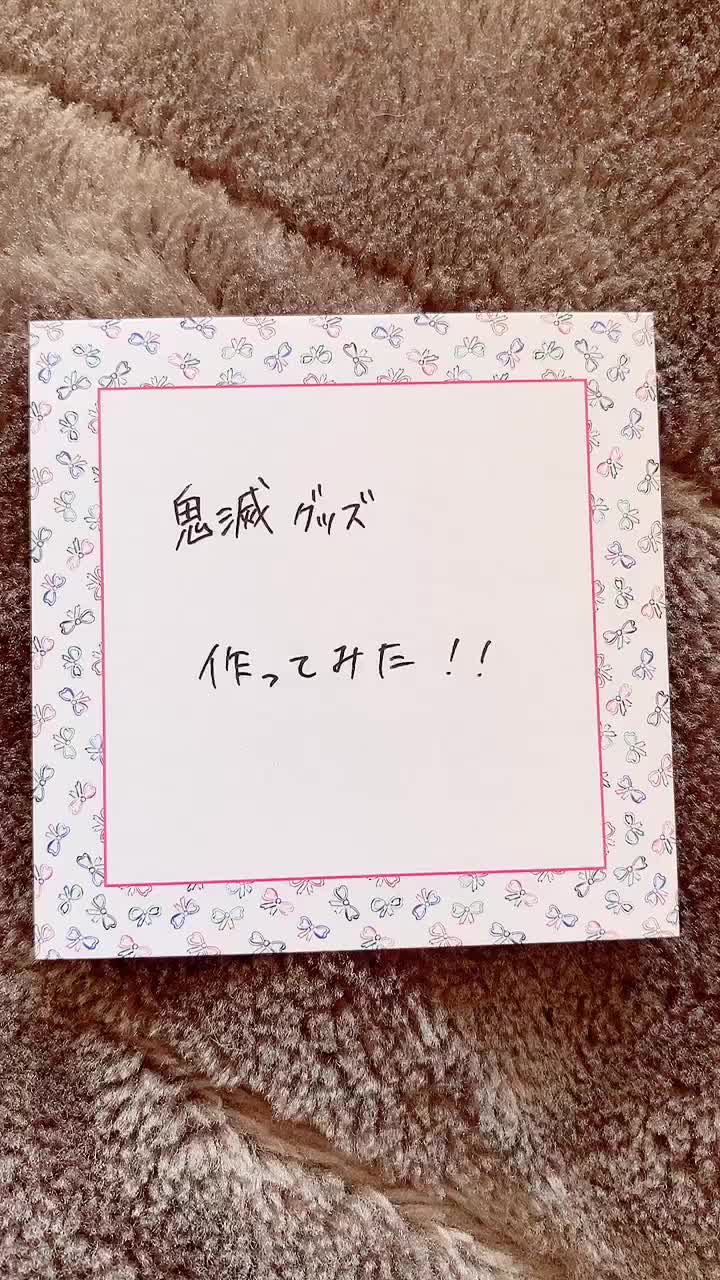 鬼滅グッズ
作ってみた！！